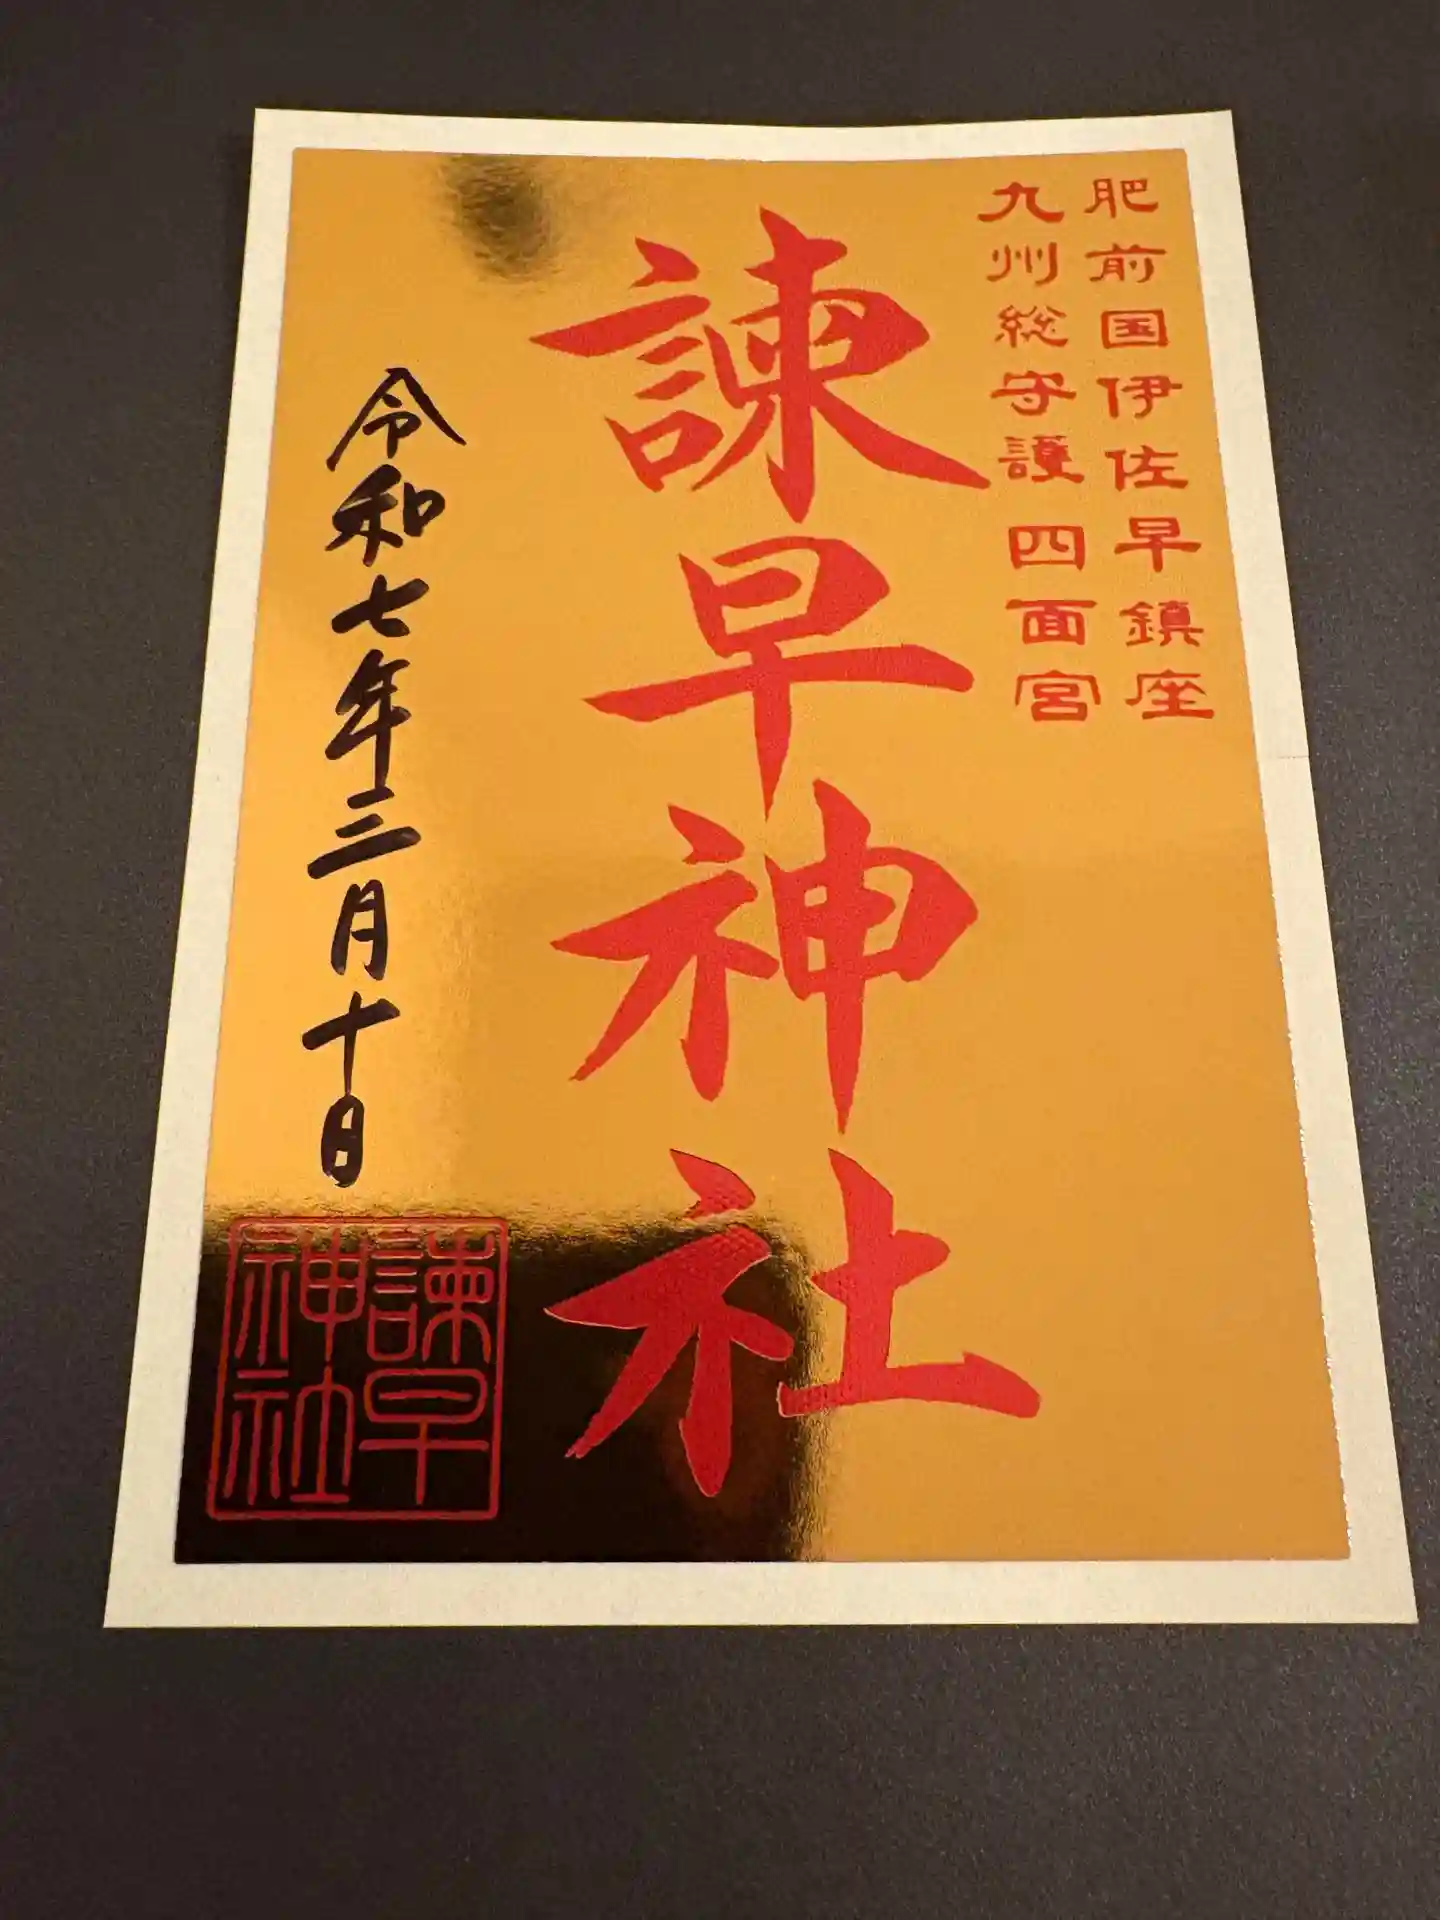 肥前国伊佐早鎮座
九州総守護四面宮
諫早神社
令和七年三月十日
諫早
神社